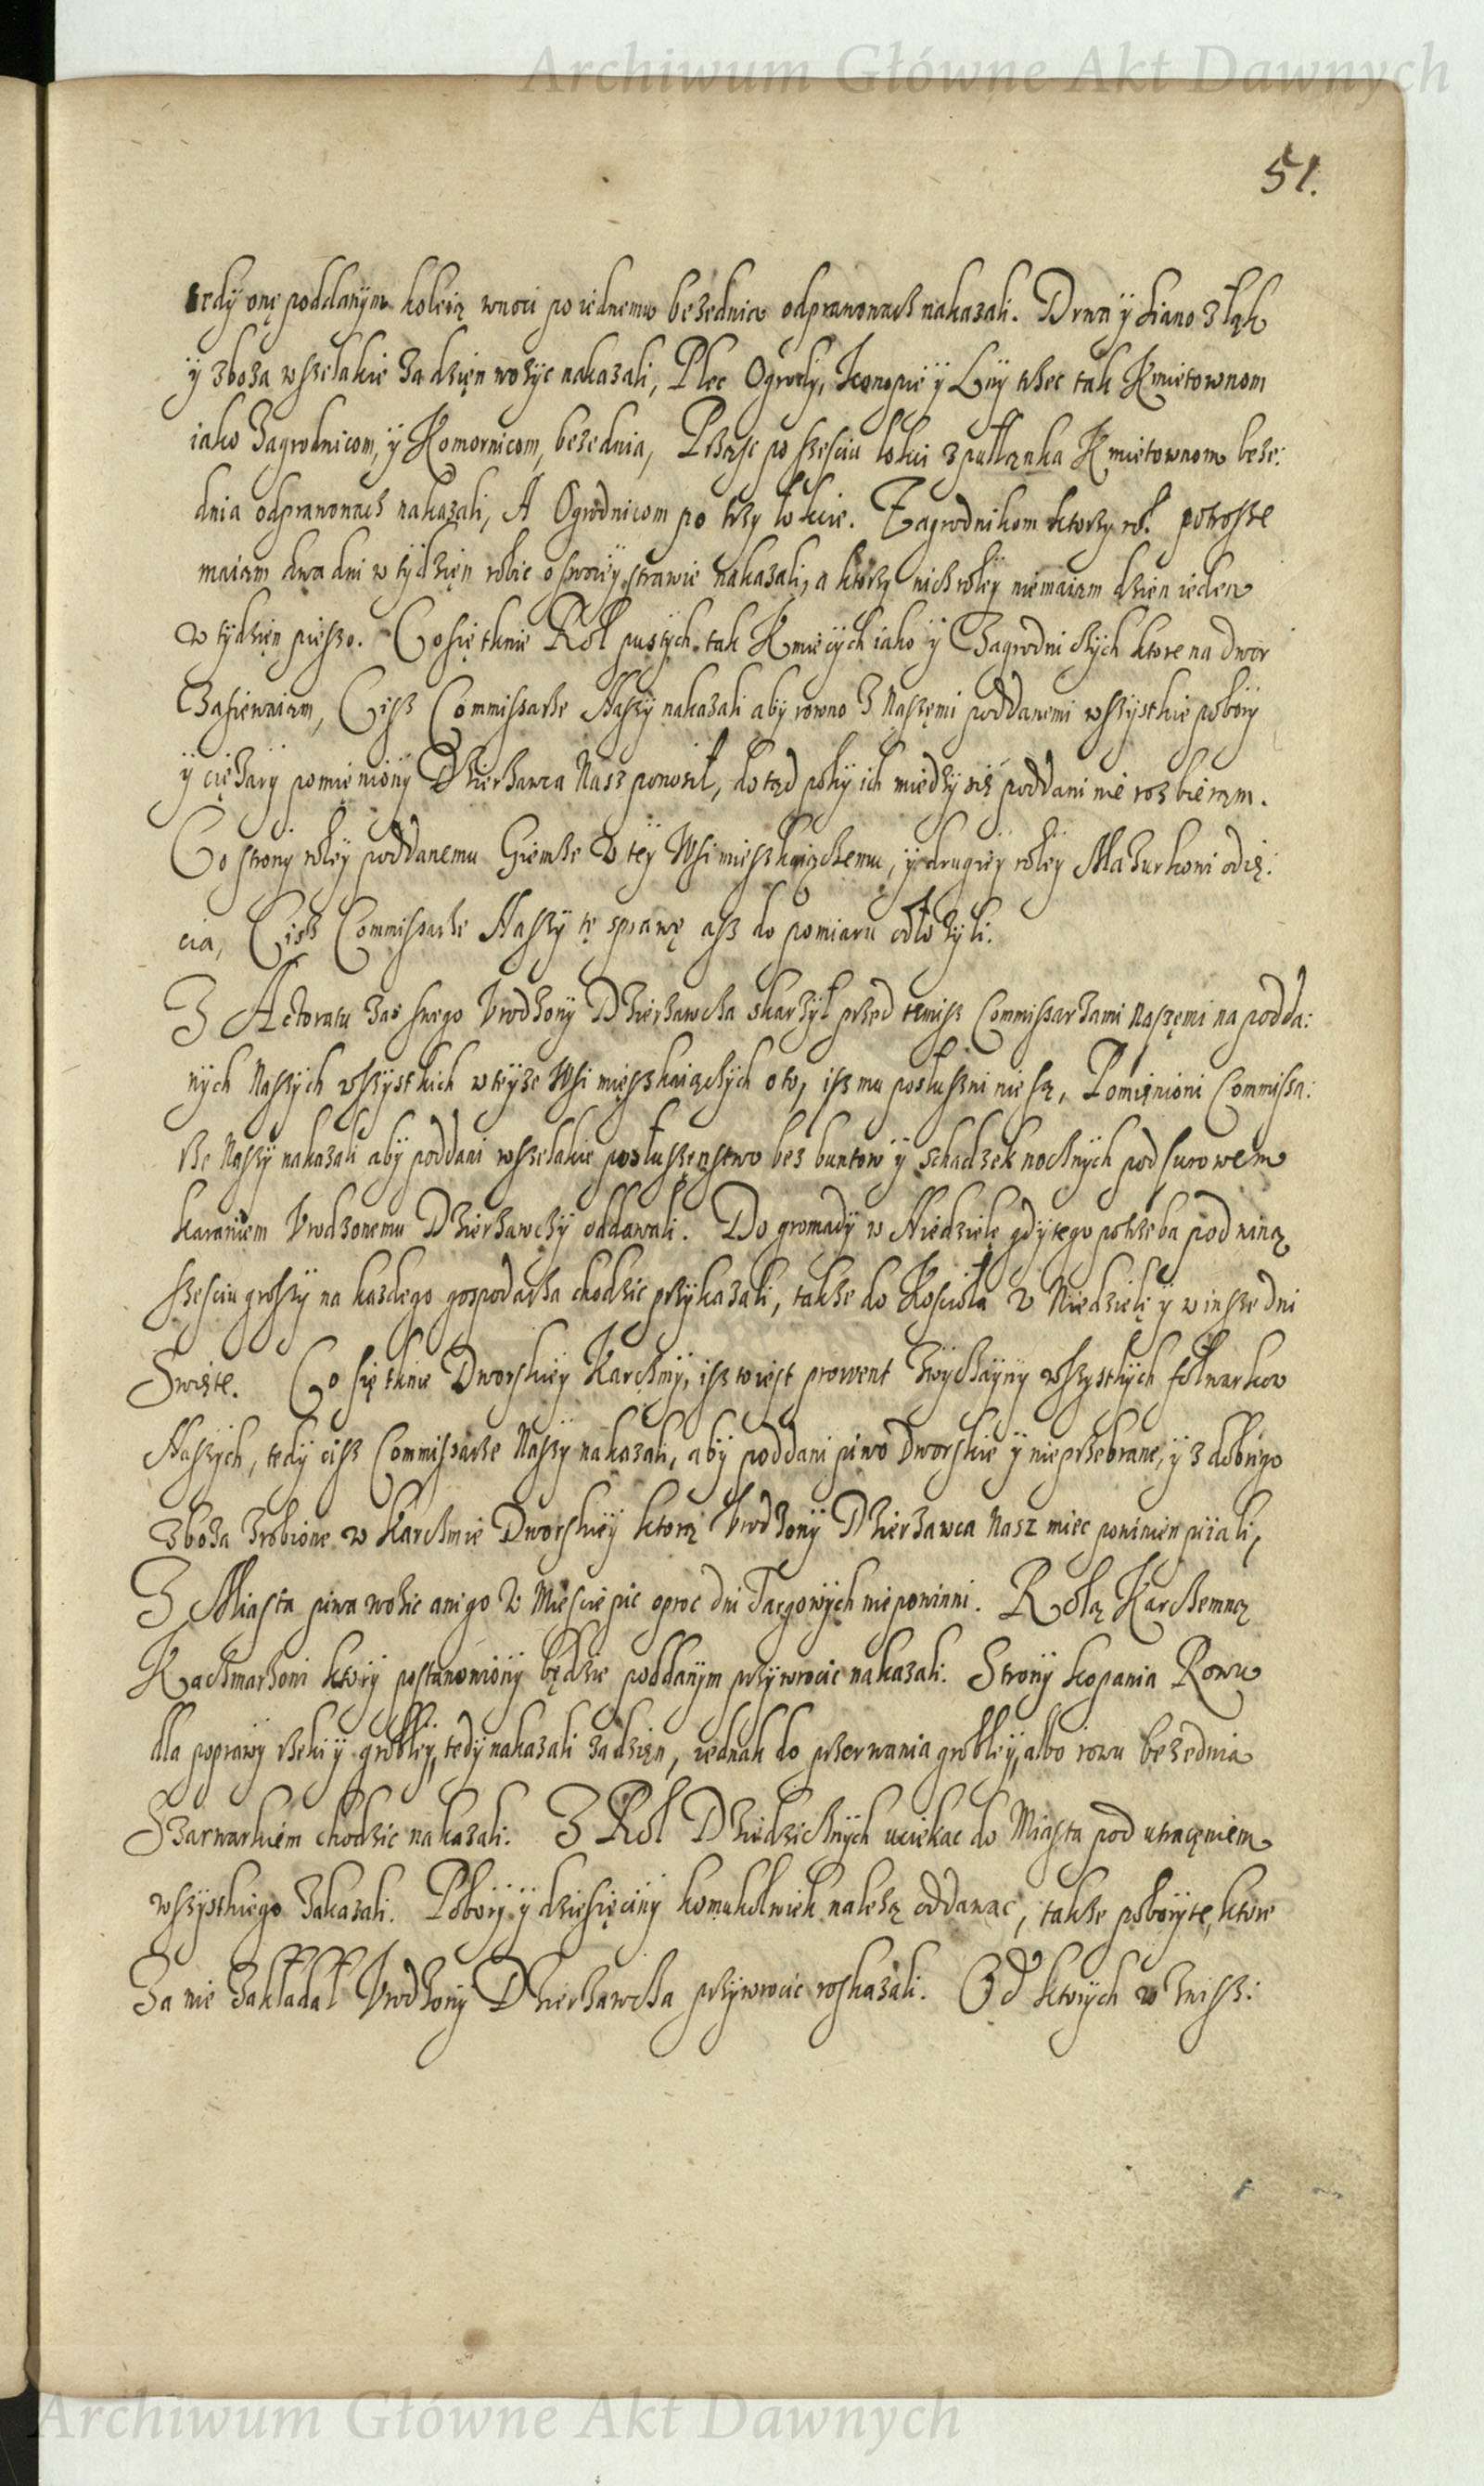 Archiwum Główne Akt Dawnych
51.
tedy onę poddanym koleią w nocy po iednemu bezednia odprawowach nakazali. Drwa ÿ siano z łąk
ÿ zboża wszelakie za dzięn wozyc nakazali, Plec Ogrody, Konopie ÿ Lny trzec tak Kmietownom
iako Zagrodnicom, ÿ Komornicom, bezednia, Prząsc po szesciu łokci z pułłanka Kmietownom beze:
dnia odprawowach nakazali, A Ogrodnicom po trzy łokcie. Zagrodnikom ktorzy rol potrosze
maiąm dwa dni w tydzięn robic o swoiey strawie nakazali, a ktorzy nich roley niemaiąm dzien ieden
w tydzięn pieszo. Co się tknie Rol pustych, tak Kmiecych iako ÿ Zagrodniczych ktore na dwor
Zasiewaiąm, Cisz Commissarze Naszy nakazali aby rowno z Naszęmi poddanemi wszystkie pobory
ÿ ciężary pomieniony Dzierzawca Nasz ponosił, do tąd poky ich miedzy sie poddani nie rozbierąm.
Co strony roley poddanemu Giemze w tey Wsi mieszkaiączemu, ÿ drugiey roley Mazurkowi odię:
cia, Cisz Commissarze Naszy tę sprawę asz do pomiaru odłozyli.
Z Actoratu zas swego Vrodzony Dzierzawcza skarzył przed temisz Commissarzami Naszęmi na podda:
nych Naszych wszystkich w teyze Wsi mięszkaiączych o to, isz mu posłuszni nie są, Pomięnioni Commissa:
rze Naszy nakazali aby poddani wszelakie posłuszęnstwo bez buntow ÿ schadzek nocznych pod surowem
karaniem Vrodzonemu Dzierzawczy oddawali. Do gromady w Niedzielę gdy tego potrzeba pod winą
szesciu groszy na kazdego gospodarza chodzic przykazali, takze do Koscioła w Niedzielę ÿ w insze dni
Swięte. Co się tknie Dworskiey Karczmy, isz to iest prowent Zwyczayny wszystkych folwarkow
Naszych, tedy cisz Commissarze Naszy nakazali, aby poddani piwo Dworskie ÿ nieprzebrane, ÿ z dobrego
zboża zrobione w Karczmie Dworskiey ktorą Vrodzony Dzierzawca Nasz miec powinien piiali,
Z Miasta piwa wozic ani go w Miescie pic oproc dni Targowych niepowinni. Rolą Karczemną
Kaczmarzowi ktory postanowiony będzie poddanym przywrocic nakazali. Strony kopania Rowu
dla poprawy rzeki ÿ grobley, tedy nakazali za dzięn, iednak do przerwania grobley, albo rowu bezednia
Szarwarkiem chodzic nakazali. Z Rol Dziedzicznych uciekac do Miasta pod utracęniem
wszystkiego Zakazali. Pobory ÿ dziesięciny komukolwiek nalezą oddawac, takze pobory te, ktore
Za nie Zakładał Vrodzony Dzierzawcza przywrocic roskazali. Od ktorych wznisz:
Archiwum Główne Akt Dawnych